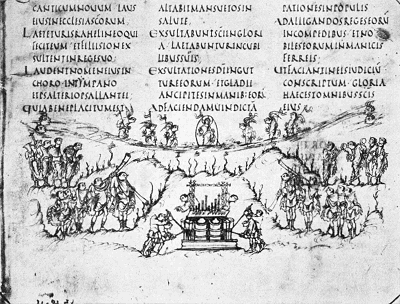 CANTICUMNOUUM LAUS
EIUSINECCLESIASCORUM
LAETETURISRAHELINEOQUI
FECITEUM ETFILIISIONEX
SULTENTINREGESUO
LAUDENTNOMENEIUSIN
CHORO INTYMPANO
ETPSALTERIOPSALLANTEI
QUIABENEPLACITUMEST
ALTABITMANSUETOSIN
SALUTE
EXSULTABUNTSCIINGLORI
A LAETABUNTURINCUBI
LIBUSSUIS
EXSULTATIONESDIINGUT
TUREEORUM ETGLADII
ANCIPITESINMANIB:EORŪ
ADFACIENDAMUINDICTĀ
PATIONESINPOPULIS
ADALLIGANDOSREGESEORŪ
INCOMPEDIBUS ETNO
BILESEORUMINMANICIS
FERREIS
UTFACIANTINEISIUDICIŪ
CONSCRIPTUM GLORIA
HAECESTOMNIBUSSCIS
EIUS